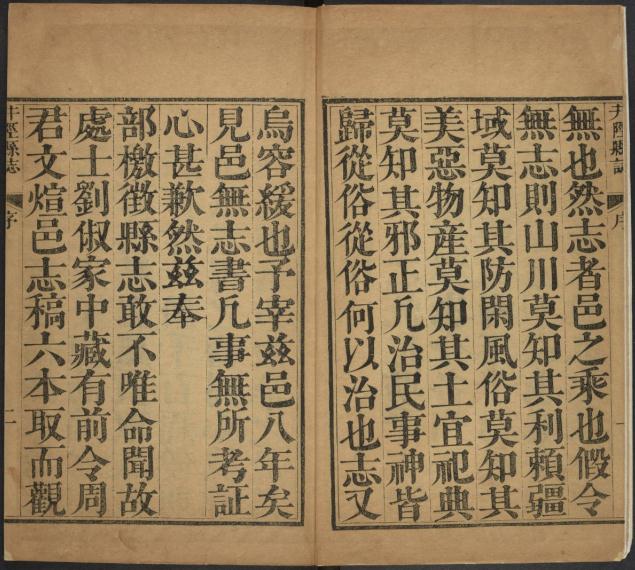 井陘縣誌
序
一
無也然志者邑之乘也假令
無志則山川莫知其利賴疆
域莫知其防閑風俗莫知其
美惡物産莫知其土宜祀典
莫知其邪正凡治民事神皆
歸從俗從俗何以治也志又
烏容緩也予宰兹邑八年矣
見邑無志書凡事無所考証
心甚歉然兹奉
部檄徵縣志敢不唯命聞故
處士劉俶家中藏有前令周
君文煊邑志稿六本取而觀
井陘縣志
序